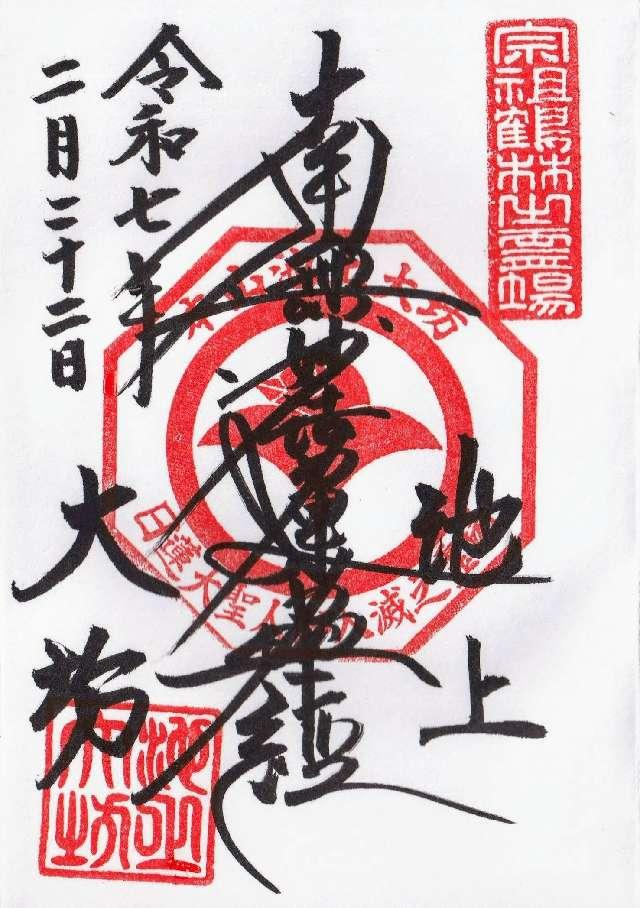 宗祖鶴林之霊場
池上
南無妙法蓮華経
令和七年
二月二十二日
大坊
本山池上大坊
日蓮大聖人御入滅之霊場
池上
大坊